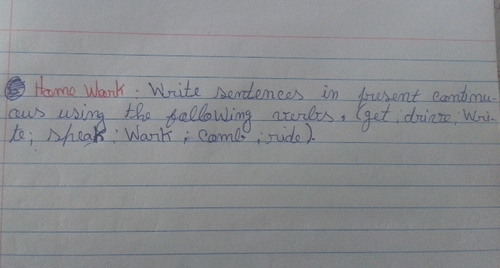 Home Wark. Write sentences in present continu-
ous using the following verbs. (get, drive, Wri-
te; speak; Wark; comb; ride).